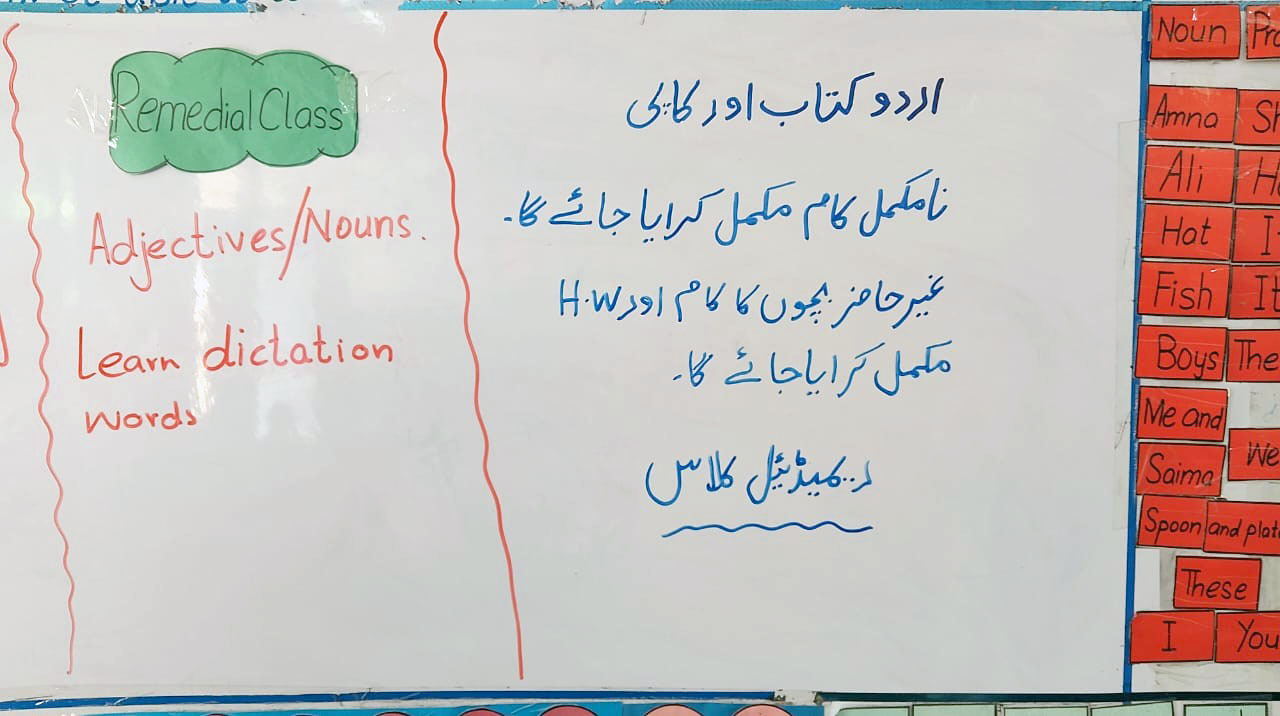 Remedial Class
Adjectives/Nouns.
Learn dictation
words
اردو کتاب اور کاپی
نامکمل کام مکمل کرایا جائے گا۔
غیر حاضر بچوں کا کام اور H.W
مکمل کرایا جائے گا۔
ریمیڈیئل کلاس
Noun
Amna
Ali
Hot
Fish
Boys The
Me and
Saima We
Spoon and plate
These
I You